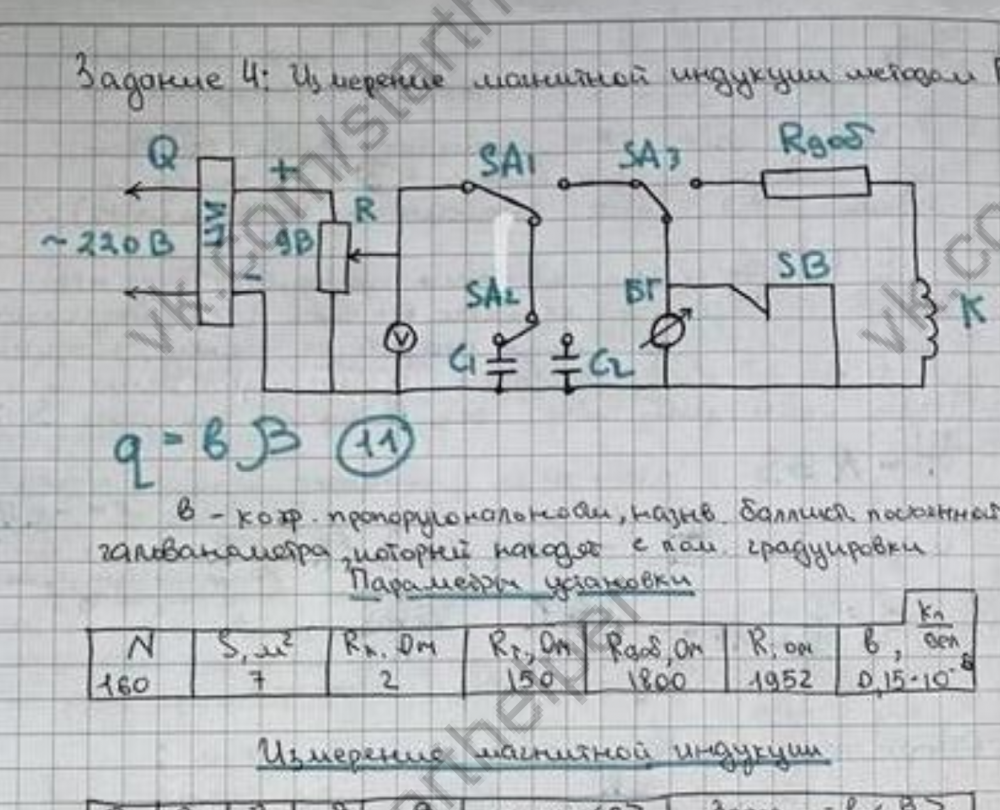 Задание 4: Измерение магнитной индукции методом
Q + SA1 SA3 Rдоб
~220В UM 9В R
- SA2 БГ SB K
V
C1 C2
q = вβ (11)
в - коэф. пропорциональности, назыв. баллист. постоянной
гальванометра, который находят с пом. градуировки
Параметры установки
N S, м² Rк, Ом Rг, Ом Rдоб, Ом R, Ом в, Кл/дел
160 7 2 150 1800 1952 0,15·10⁻⁶
Измерение магнитной индукции